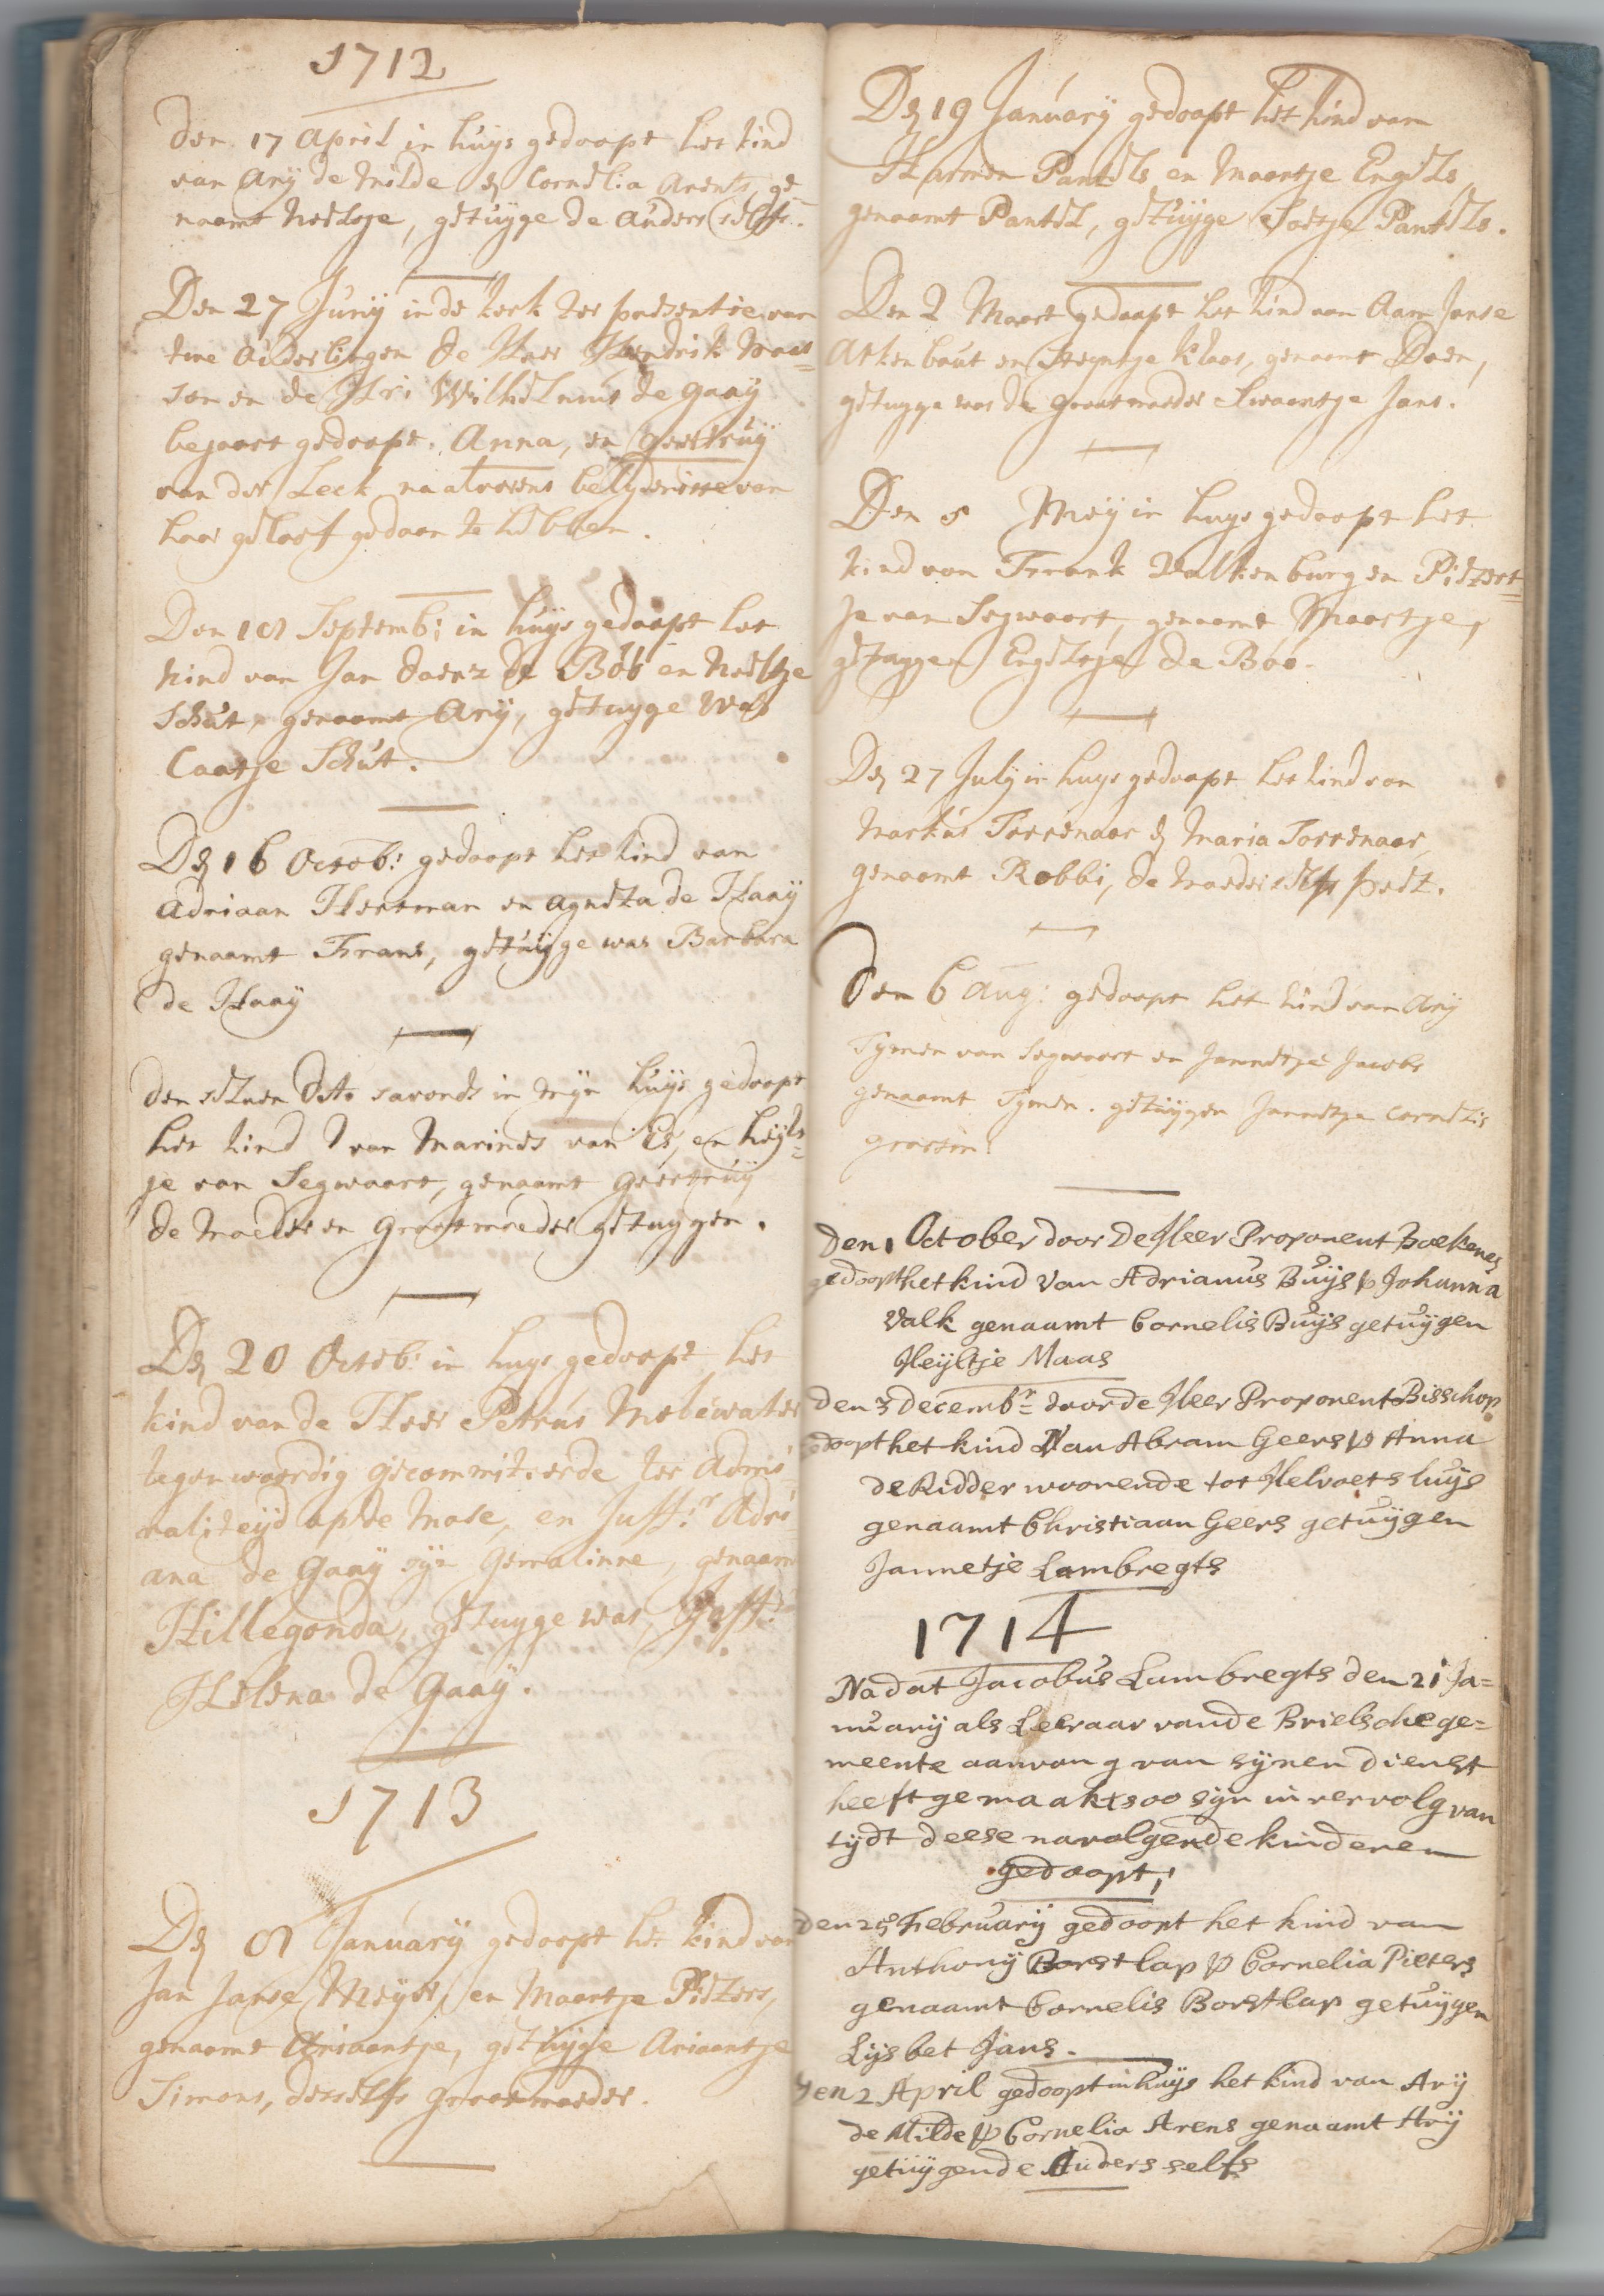 1712
Den 17 April in huys gedoopt het kind
van Ary de Milde en Cornelia Arents, ge-
naamt Neeltje, getuyge de Auders selfs.
Den 27 Juny in de kerk ter presentie van
twe Ouderlingen de Heer Hendrik Maas
son en de Hr: Wilhelmus de Gaay
bejaart gedoopt. Anna, en Geertruy
van der Leck na alvorens belydenisse van
haar geloof gedaan te hebben.
Den 18 Septemb: in huys gedoopt het
kind van Jan Daenz de Boo en Neeltje
Schut, genaamt Ary, getuyge was
Caatje Schut.
Den 16 Octob: gedoopt het kind van
Adriaan Heerman en Agneta de Haay
genaamt Frans, getuyge was Barbara
de Haay
den selven dito savonds in myn huys gedoopt
het kind van Marinus van Es, en heyl=
je van Segwaart, genaamt Geertruy
de Moeder en Grootmoeder getuygen.
Den 20 Octob: in huys gedoopt het
kind van de Heer Petrus Mobewater
tegenwoordig gecommiteerde ter Admi-
raliteyd op de Mase, en Juffr. Adri-
ana de Gaay syn Gemalinne, genaamt
Hillegonda, getuyge was Juffr:
Helena de Gaay.
1713
Den 8 January gedoopt het kind van
Jan Janse Meyer, en Maartje Pieters,
genaamt Ariaantje, getuyge Ariaantje
Simons, desselfs Grootmoeder.
Den 19 January gedoopt het kind van
Harmen Pantels en Maartje Engels,
genaamt Pantel, getuyge Soetje Pantels.
Den 2 Maart gedoopt het kind van Aam Janse
Arkenbout en Steyntje Klaas, genaamt Daen,
getuyge was de grootmoeder Swaantje Jans.
Den 8 Mey in huys gedoopt het
kind van Frank Valkenburg en Pieter=
je van Segwaart, genaamt Maartje,
getuyge Engeltje de Boo.
Den 27 July in huys gedoopt het kind van
Markus Torrenaar en Maria Torrenaar,
genaamt Robbi, de moeder selfs peet.
Den 6 Aug: gedoopt het kind van Ary
Tymen van Segwaart en Jannetje Jacobs
genaamt Tymen. getuygen Jannetje Cornelis
Den 1 October door De Heer Proponent Boekenes
gedoopt het kind van Adrianus Buijs & Johanna
Valk genaamt Cornelis Buijs getuijgen
Heijltje Maas
den 3 decembr. door de Heer Proponent Bisschop
gedoopt het kind Van Abram Geers & Anna
de Ridder woonende tot Helvoets luijs
genaamt Christiaan Geers getuijgen
Jannetje Lambregts
1714
Nadat Jacobus Lambregts den 21 Ja=
nuarij als Leeraar vande Brielsche ge=
meente aanvang van sijnen dienst
heeft gemaakt soo sijn in vervolg van
tijdt deese navolgende kinderen
gedoopt,
den 25 Februarij gedoopt het kind van
Anthonij Borstlap & Cornelia Pieters
genaamt Cornelis Borstlap getuijgen
Lijsbet Jans.
den 2 April gedoopt in huijs het kind van Arij
de Milde & Cornelia Arens genaamt Arij
getuijgen de Auders selfs